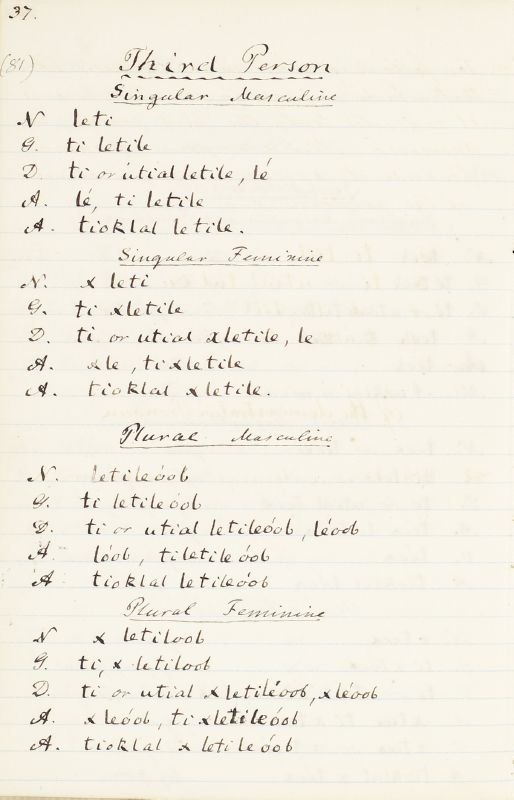 37.
(81)
Third Person
Singular Masculine
N leti
G. ti letile
D. ti or útial letile, lé
A. lé, ti letile
A. tioklal letile.
Singular Feminine
N. x leti
G. ti xletile
D. ti or utial xletile, le
A. xle, tixletile
A. tioklal xletile.
Plural Masculine
N. letileóob
G. ti letileóob
D. ti or utial letileóob, léoob
A lóob, tiletileóob
A tioklal letileóob
Plural Feminine
N x letiloob
G. ti, x letiloob
D. ti or utial xletiléoob, xléoob
A. xleóob, tixletileóob
A. tioklal xletileóob